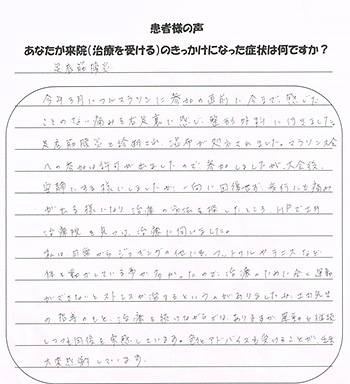 患者様の声
あなたが来院(治療を受ける)のきっかけになった症状は何ですか？
足底筋障害
今年3月にフルマラソンに参加の直前に今まで、感じた
ことのない痛みを右足裏に感じ、整形外科に行きました
足底筋障害と診断され、湿布が処方されました。マラソン大会
への参加は許可が出ましたので参加しましたが、大会後、
安静にする様にしましたが一向に回復せず、歩行にも痛み
が出る様になり、治療の方法を探したところ、HPで土井
治療院を見つけ、治療に伺いました。
私は日頃からジョギングの他にも、フットサルやテニスなど
体を動かしている事が多かったので、治療のために全く運動
ができないとストレスが溜まるというのがありましたが、土井先生
の指導のもと、治療を続けながらでは、ありますが運動も継続
しつつ回復を実感しています。色々アドバイスも受けることができ
大変感謝しています。